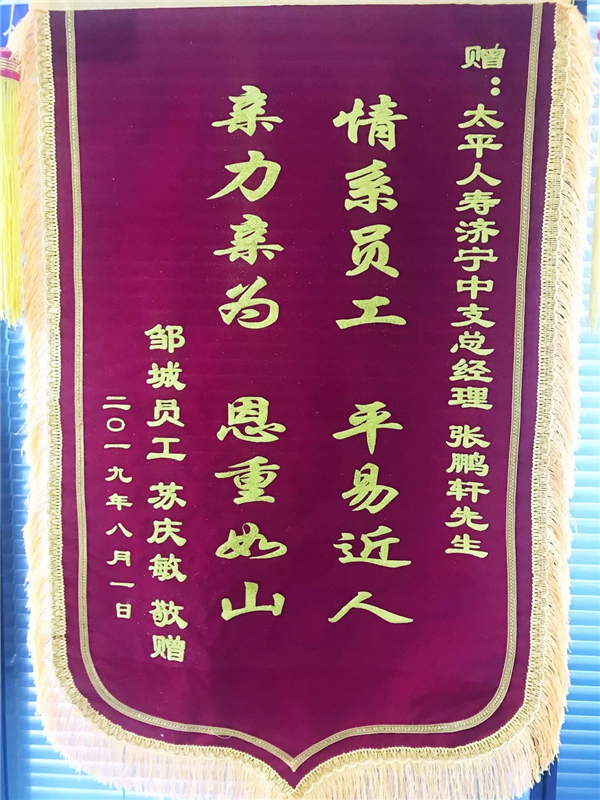 赠：太平人寿济宁中支总经理 张鹏轩先生
情系员工 平易近人
亲力亲为 恩重如山
邹城员工 苏庆敏 敬赠
二〇一九年八月一日